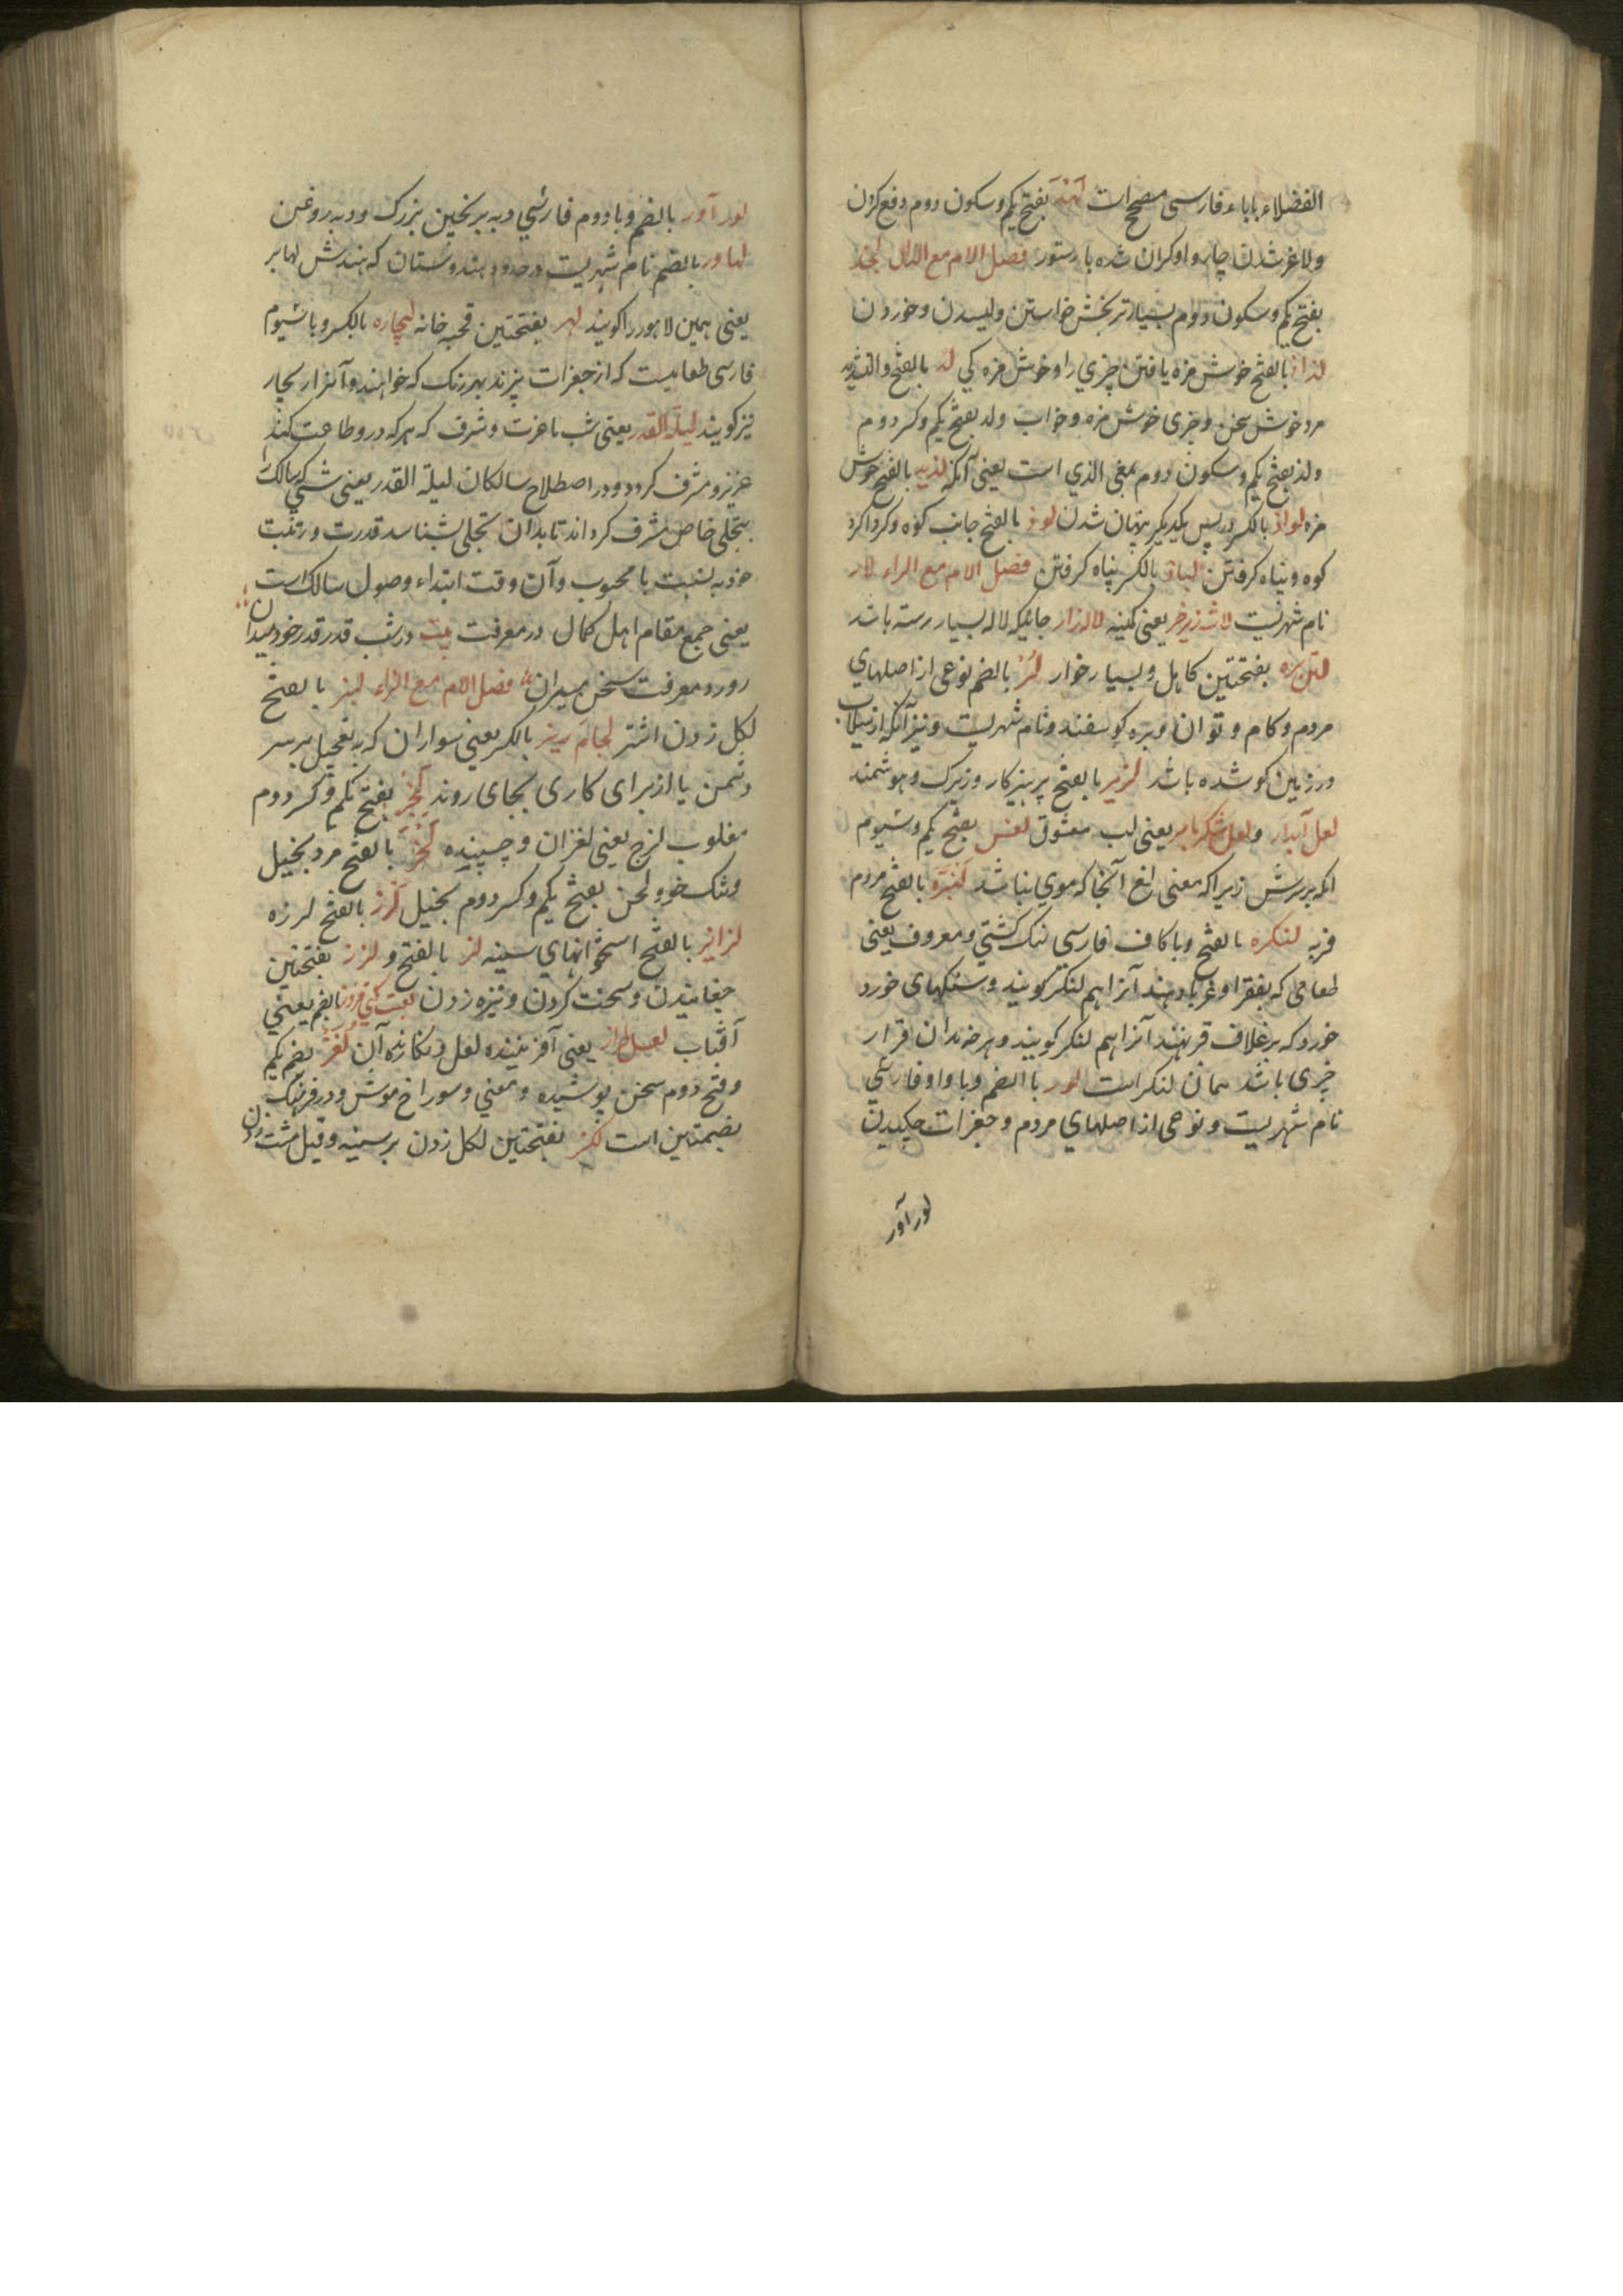 الفضلاء با باء فارسی مصحح است لهد بفتح یکم و سکون دوم دفع کردن
و لاغر شدن چاروا و کران شده با رستور فصل اللام مع الذال لجذ
بفتح یکم و سکون دوم بسیار تر بخش خواستن و لیسیدن و خوردن
لذاذ بالفتح خوش مزه یافتن چیزی را و خوش مزه کی لذ بالفتح والتشدید
مرد خوش سخن و چیزی خوش مزه و خواب ولذ بفتح یکم و کسر دوم
ولذ بفتح یکم و سکون دوم بمعنی الذی است یعنی آنکه لذیذ بالفتح خوش
مزه لواذ بالکسر در پس یکدیکر پنهان شدن لوذ بالفتح جانب کوه و کرداکرد
کوه و پناه کرفتن لیاذ بالکسر پناه کرفتن فصل اللام مع الراء لار
نام شهریست لاشه زیر خر یعنی کمینه لاله زار جائیکه لاله بسیار رسته باشد
لتنبره بفتحتین کاهل و بسیار خوار لر بالضم نوعی از اصلهای
مردم و کام و توان و بره کوسفند و نام شهریست و نیز آنکه از سیلاب
در زمین کو شده باشد لزیر بالفتح پرهیزکار و زیرک و هوشمند
لعل آبدار و لعل شکربار یعنی لب معشوق لغسر بفتح یکم و سیوم
انکه بر سرش زیراکه معنی لغ آنجا که موی نباشد لنبره بالفتح مردم
فربه لنکره بالفتح و با کاف فارسی لنک کشتی و معروف یعنی
طعامی که بفقرا و غربا دهند آنرا هم لنکر کویند و سنکهای خورد
خورد که بر غلاف قر نهند آنرا هم لنکر کویند و هر خه بدان قرار
چیزی باشد همان لنکر است لور باالضم و با واو فارسی
نام شهریست و نوعی از اصلهای مردم و جغرات چکیدن
لور آور
لور آور بالضم و با دوم فارسی دبه برنجین بزرک و دبه روغن
لهاور بالضم نام شهریست در حدود هندوستان که هندش لهابر
یعنی همین لاهور را کویند لهر بفتحتین قحبه خانه لیچاره بالکسر و با سیوم
فارسی طعامیست که از جغرات پزند بهر رنک که خواهند و آنرا ریچار
نیز کویند لیلة القدر یعنی شب با عزت و شرف که هر که درو طاعت کند
عزیز و مشرف کردد و در اصطلاح سالکان لیلة القدر یعنی شبی که سالک را
بتجلی خاص مشرف کرداند تا بدان تجلی بشناسد قدرت و رتبت
خود به نسبت با محبوب و آن وقت ابتداء وصول سالک است
یعنی جمع مقام اهل کمال در معرفت بیت در شب قدر قدر خود میدان
روز در معرفت سخن میران فصل اللام مع الزاء لبز بالفتح
لکل زدن اشتر لجام ریز بالکسر یعنی سواران که به تعجیل بر سر
دشمن یا از برای کاری بجای روند لجز بفتح یکم و کسر دوم
مغلوب لزج یعنی لغزان و چسپنده لحز بالفتح مرد بخیل
و تنک خو و لحز بفتح یکم و کسر دوم بخیل لرز بالفتح لرزه
لزایز بالفتح اسحوانهای سینه لز بالفتح و لزز بفتحتین
چفانیدن و سخت کردن و نیزه زدن لعبت کیتی فروز بالضم یعنی
آفتاب لعل طراز یعنی آفریننده لعل و نکارنده آن لغز بضم یکم
و فتح دوم سخن پوشیده و معنی و سوراخ موش و در فرهنک
بضمتین است لکز بفتحتین لکل زدن بر سینه و قیل مشت زدن